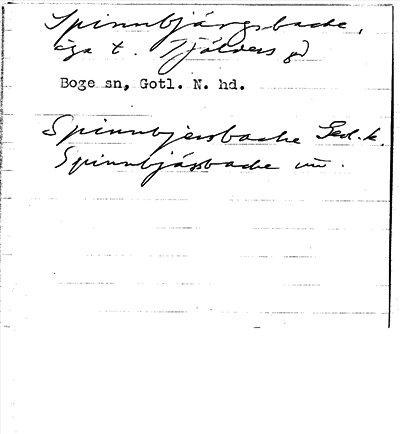 Spinnbjärgsbacke,
äga t. Tjälders gd
Boge sn, Gotl. N. hd.
Spinnbjersbacke Ged. k.
Spinnbjäsbacke